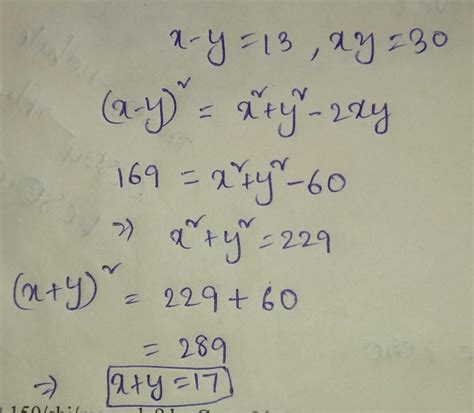 x-y=13, xy=30
(x-y)² = x²+y²-2xy
169 = x²+y²-60
⇒ x²+y²=229
(x+y)² = 229+60
= 289
⇒ x+y=17